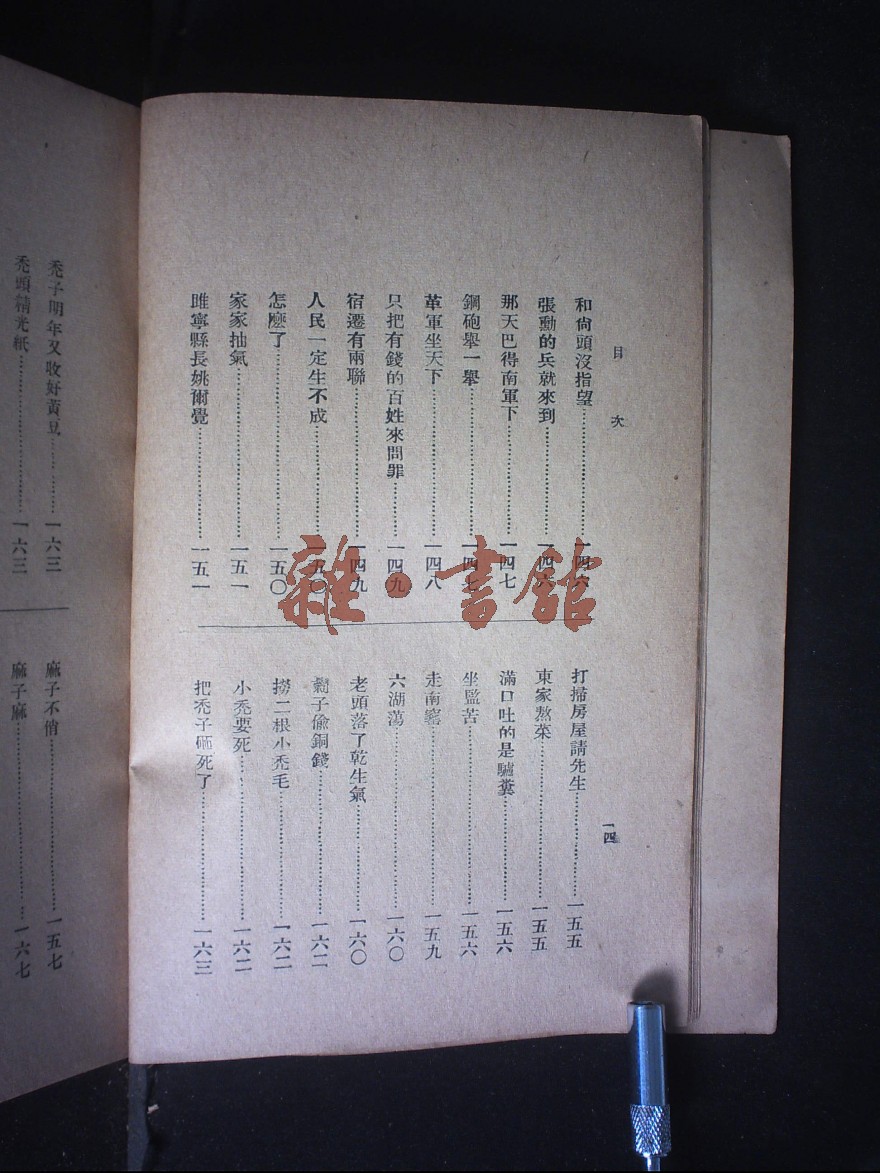 目次
和尙頭沒指望……一四六
張勳的兵就來到……一四六
那天巴得南軍下……一四七
鋼砲舉一舉……一四七
革軍坐天下……一四八
只把有錢的百姓來問罪……一四九
宿遷有兩聯……一四九
人民一定生不成……一五〇
怎麼了……一五〇
家家抽氣……一五一
睢寧縣長姚爾覺……一五一
打掃房屋請先生……一五五
東家熬菜……一五五
滿口吐的是驢糞……一五六
坐監苦……一五六
走南窰……一五九
六湖蕩……一六〇
老頭落了乾生氣……一六〇
子偸銅錢……一六二
撈二根小禿毛……一六二
小禿要死……一六二
把禿子砸死了……一六三
一四
禿子明年又收好黃豆……一六三
禿頭精光紙……一六三
麻子不俏……一五七
麻子麻……一六七
雜·書館